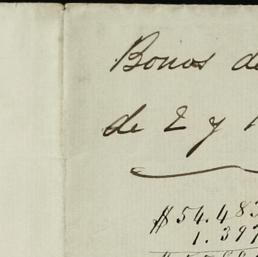 Bonos de
de 2 y
$54.483
1.397